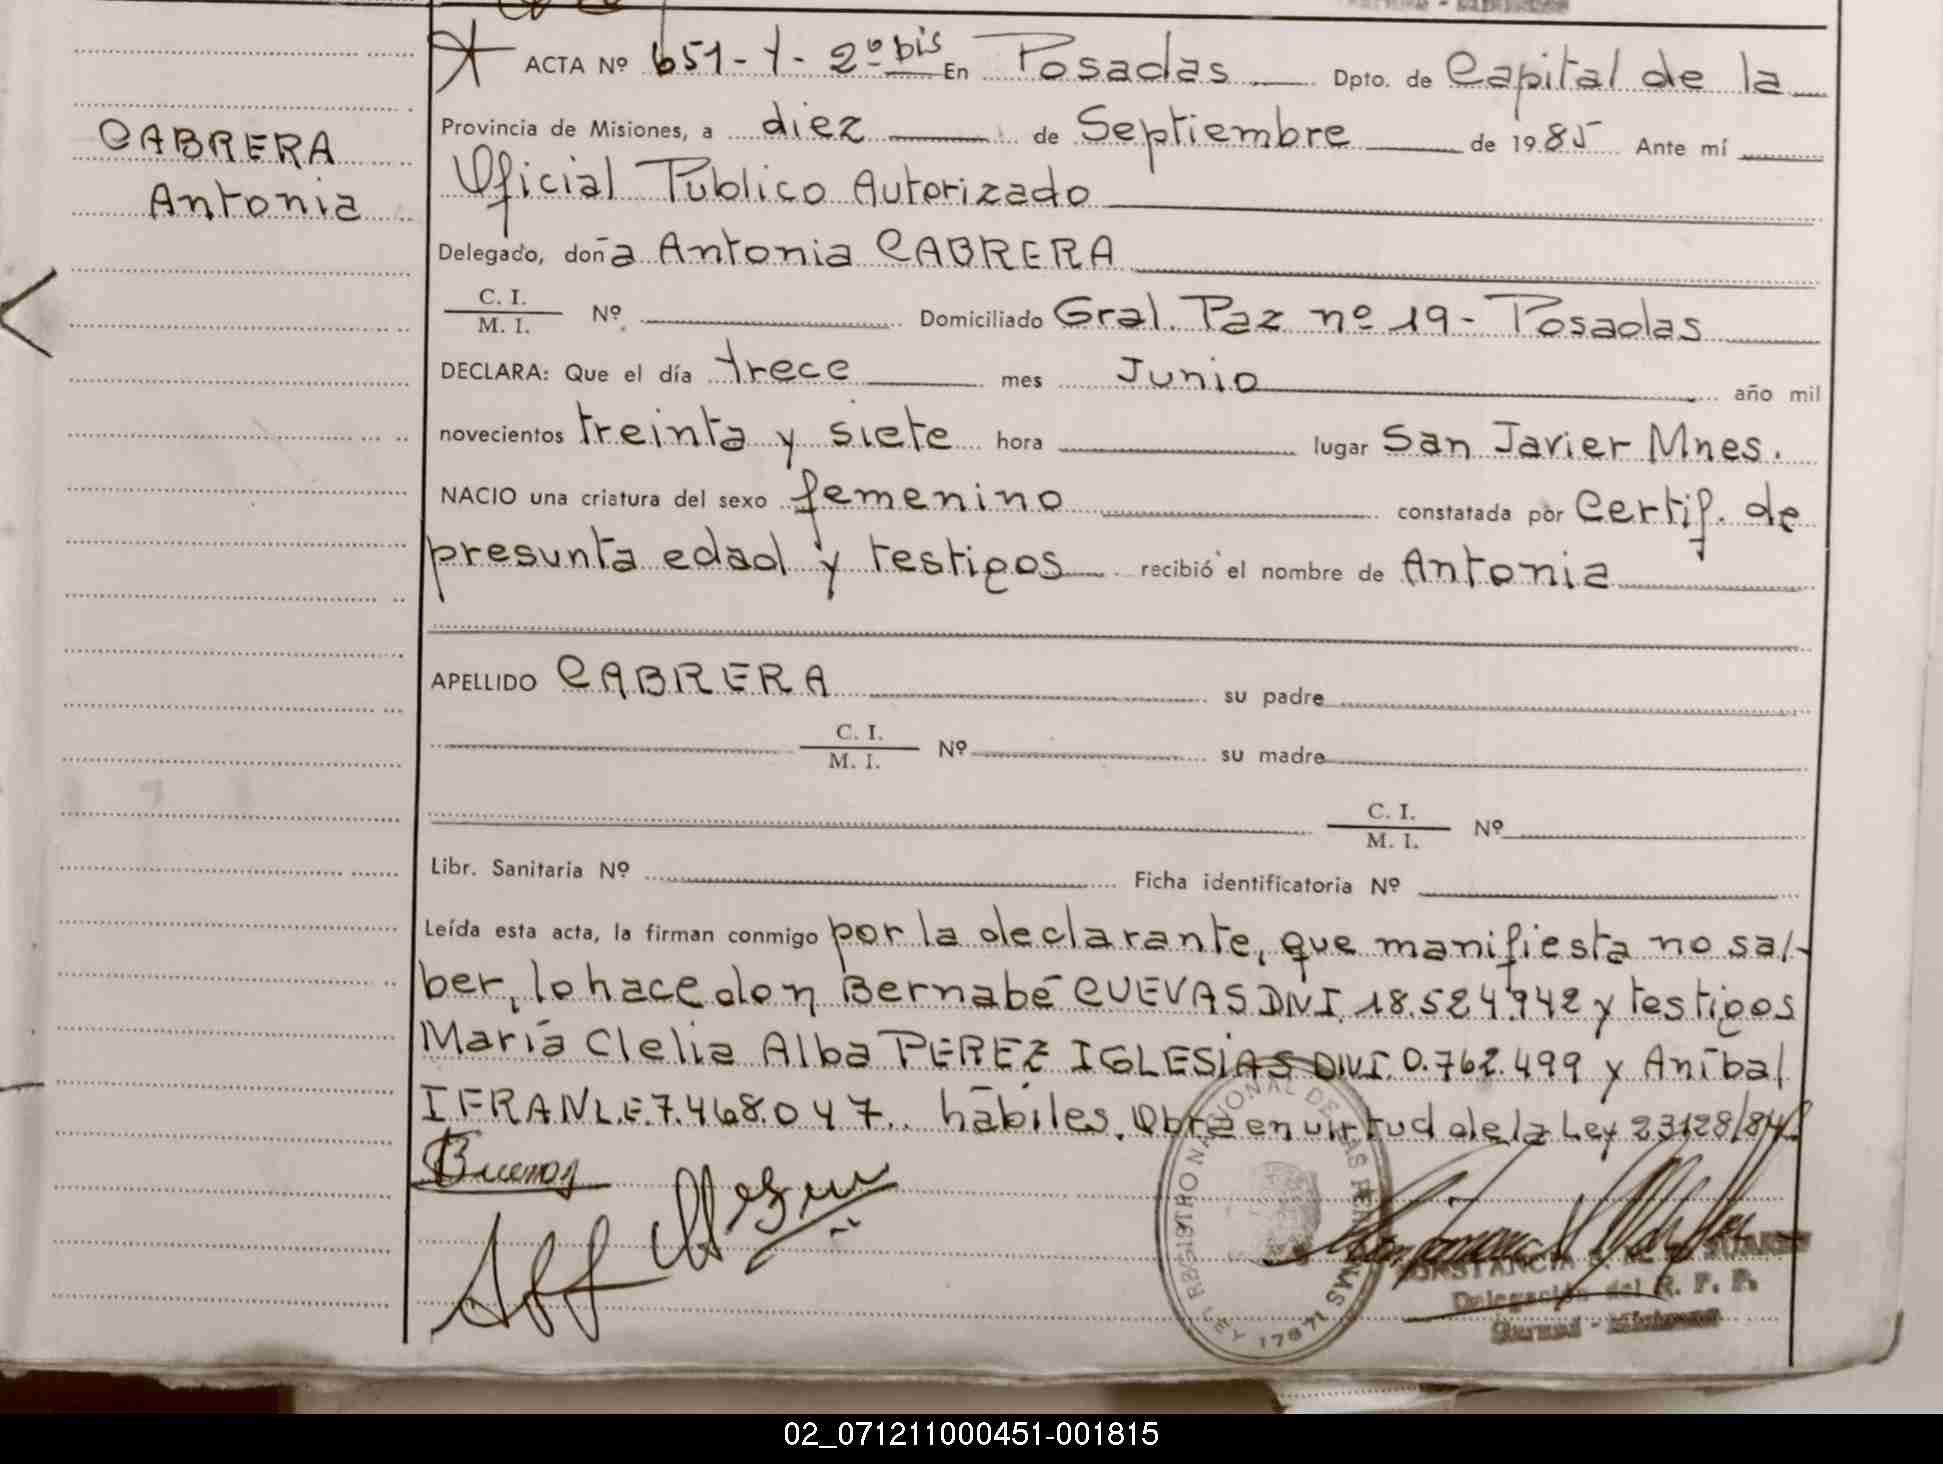 ACTA Nº 651 - 1 - 2º bis En Posadas Dpto. de Capital de la
Provincia de Misiones, a diez de Septiembre de 1985 Ante mí
CABRERA
Oficial Público Autorizado
Antonia
Delegado, doña Antonia CABRERA
C. I.
M. I. Nº Domiciliado Gral. Paz nº 19 - Posadas
DECLARA: Que el día trece mes Junio año mil
novecientos treinta y siete hora lugar San Javier Mnes.
NACIO una criatura del sexo femenino constatada por Certif. de
presunta edad y testigos recibió el nombre de Antonia
APELLIDO CABRERA su padre
C. I.
M. I. Nº su madre
C. I.
M. I. Nº
Libr. Sanitaria Nº Ficha identificatoria Nº
Leída esta acta, la firman conmigo por la declarante, que manifiesta no sa-
ber, lo hace don Bernabé CUEVAS DNI. 18.524.942 y testigos
María Clelia Alba PEREZ IGLESIAS DNI. 0.762.499 y Aníbal
IFRAN L.E. 7.468.047. hábiles. Obra en virtud de la Ley 23128/84
REGISTRO NACIONAL DE LAS PERSONAS
LEY 17671
Delegación del R. P. P.
02_071211000451-001815